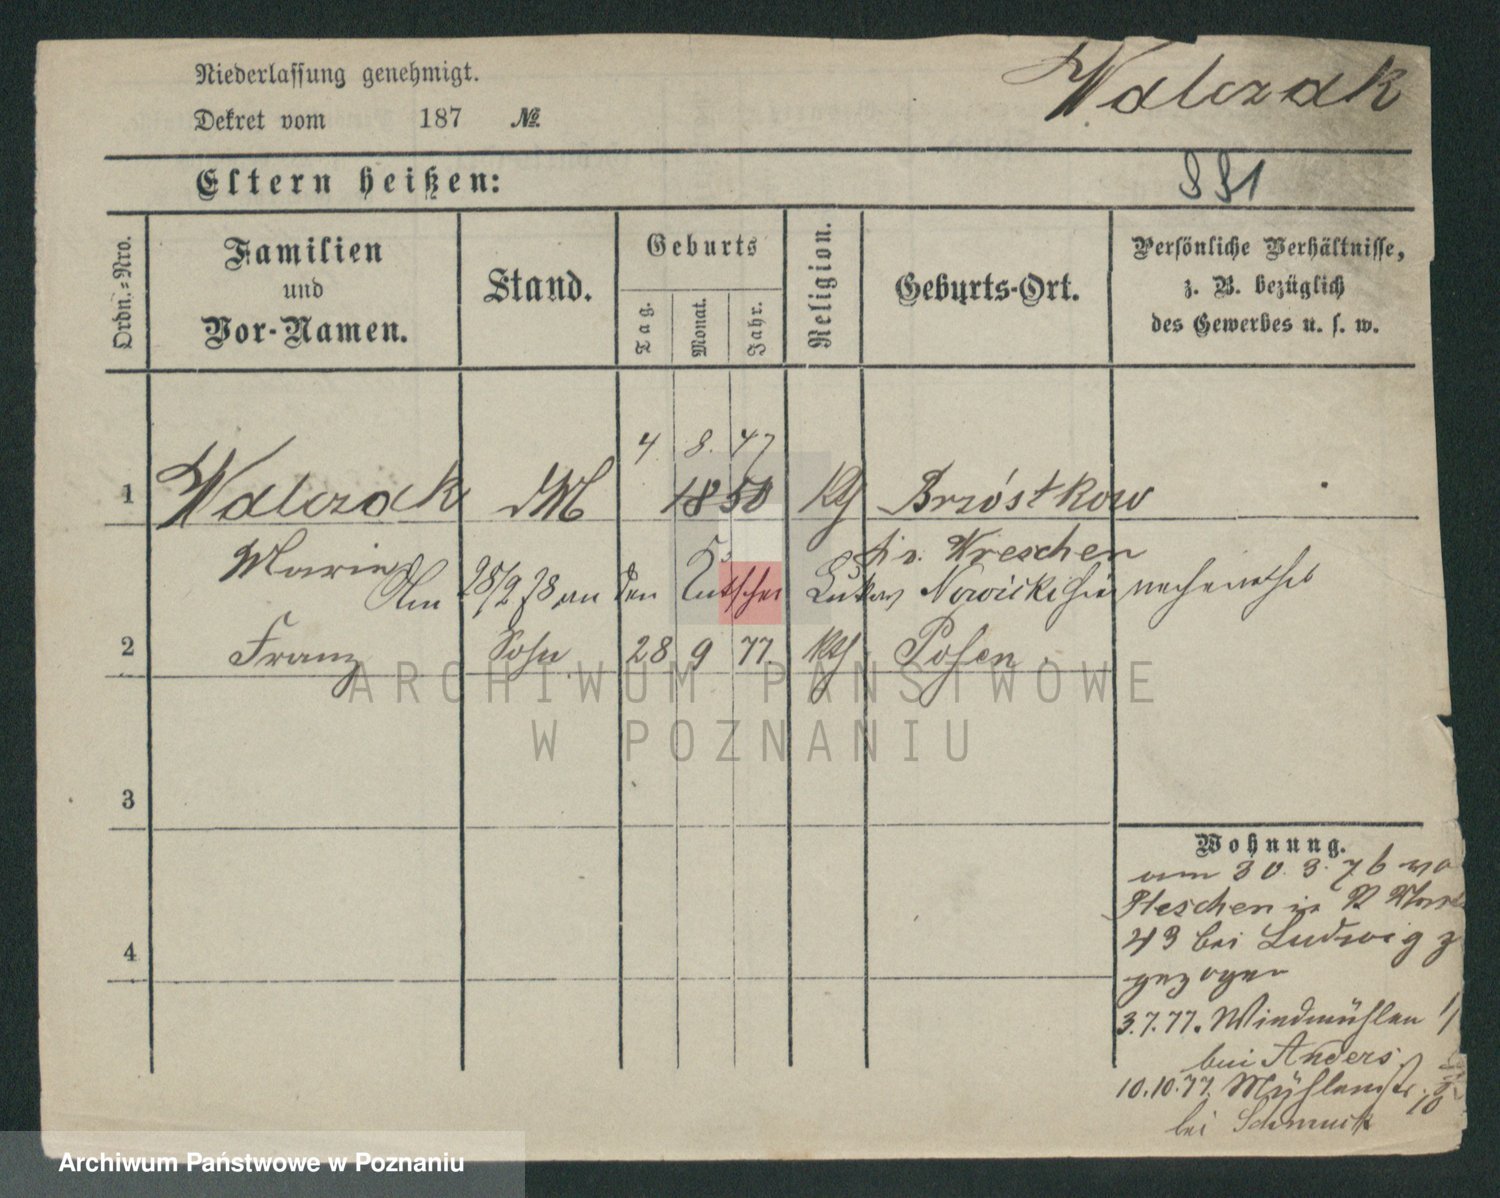 Niederlassung genehmigt.
Walczak
Dekret vom 187 №
Eltern heißen:
Ordn.-Nro.
Familien
und
Vor-Namen.
Stand.
Geburts
Tag.
Monat.
Jahr.
Religion.
Geburts-Ort.
Persönliche Verhältnisse,
z. B. bezüglich
des Gewerbes u. s. w.
4 8. 47
1 Walczak 1850 Kth Brzóstkow
Marie Kr. Wreschen
Am 28/2 78 an den Kutscher Lukas Nowicki hier verheirathet
2 Franz Sohn 28 9 77. Kth Posen
ARCHIWUM PAŃSTWOWE
W POZNANIU
3
4
Wohnung.
am 30.3.76 von
Pleschen in
43 bei Ludwig
gezogen
3.7.77. Windmühlen
bei Anders.
10.10.77. Mühlenstr. 10
bei Schmuck
Archiwum Państwowe w Poznaniu